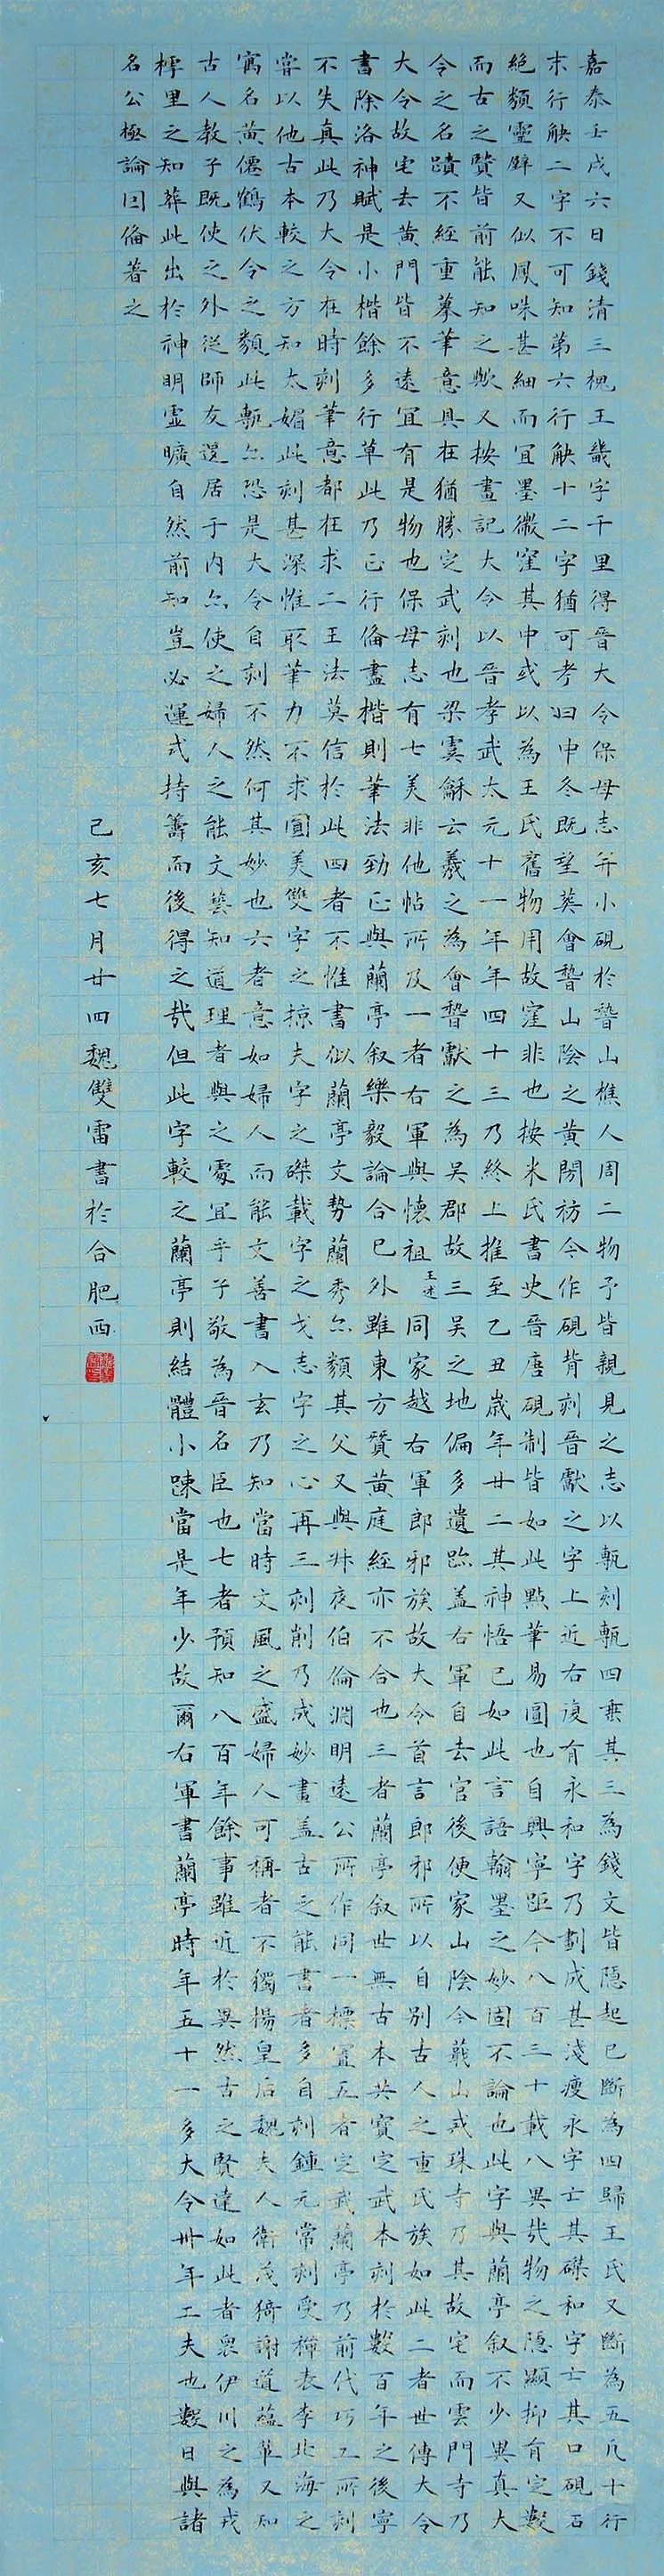 嘉泰壬戌六日錢清三槐王畿字千里得晉大令保母志并小硯於稽山樵人周二物予皆親見之志以甎刻甎四垂其三為錢文皆隱起已斷為四歸王氏又斷為五凡十行
末行缺二字不可知第六行缺十二字猶可考曰中冬既望葬會稽山陰之黃閍祊今作硯背刻晉獻之字上近右復有永和字乃劃成甚淺瘦永字亡其磔和字亡其口硯石
絕類靈璧又似鳳咮甚細而宜墨微窪其中或以為王氏舊物用故窪非也按米氏書史晉唐硯制皆如此點筆易圓也自興寧距今八百三十載八異哉物之隱顯抑有定數
而古之賢皆前能知之歟又按畫記大令以晉孝武太元十一年年四十三乃終上推至乙丑歲年廿二其神悟已如此言語翰墨之妙固不論也此字與蘭亭叙不少異真大
令之名蹟不經重摹筆意具在猶勝定武刻也梁虞龢云羲之為會稽獻之為吳郡故三吳之地偏多遺跡盖右軍自去官後便家山陰今蕺山戒珠寺乃其故宅而雲門寺乃
大令故宅去黃門皆不遠宜有是物也保母志有七美非他帖所及一者右軍與懷祖王述同家越右軍郎邪族故大令首言郎邪所以自別古人之重氏族如此二者世傳大令
書除洛神賦是小楷餘多行草此乃正行俻盡楷則筆法勁正與蘭亭叙樂毅論合已外雖東方贊黃庭經亦不合也三者蘭亭叙世無古本共寶定武本刻於數百年之後寧
不失真此乃大令在時刻筆意都在求二王法莫信於此四者不惟書似蘭亭文勢蘭秀亦類其父又與叔夜伯倫淵明遠公所作同一標置五者定武蘭亭乃前代巧工所刻
嘗以他古本較之方知太媚此刻甚深惟取筆力不求圓美雙字之掠夫字之磔載字之戈志字之心再三刻削乃成妙畫盖古之能書者多自刻鍾元常刻受禪表李北海之
寓名黃僊鶴伏令之類此甎亦恐是大令自刻不然何其妙也六者意如婦人而能文善書入玄乃知當時文風之盛婦人可稱者不獨楊皇后魏夫人衛茂猗謝道蘊輩又知
古人教子既使之外從師友還居于內亦使之婦人之能文藝知道理者與之處宜乎子敬為晉名臣也七者預知八百年餘事雖近於異然古之賢達如此者衆伊川之為戎
樗里之知葬此出於神明虛曠自然前知豈必運式持籌而後得之哉但此字較之蘭亭則結體小踈當是年少故爾右軍書蘭亭時年五十一多大令卅年工夫也數日與諸
名公極論因俻著之
己亥七月廿四魏雙雷書於合肥西